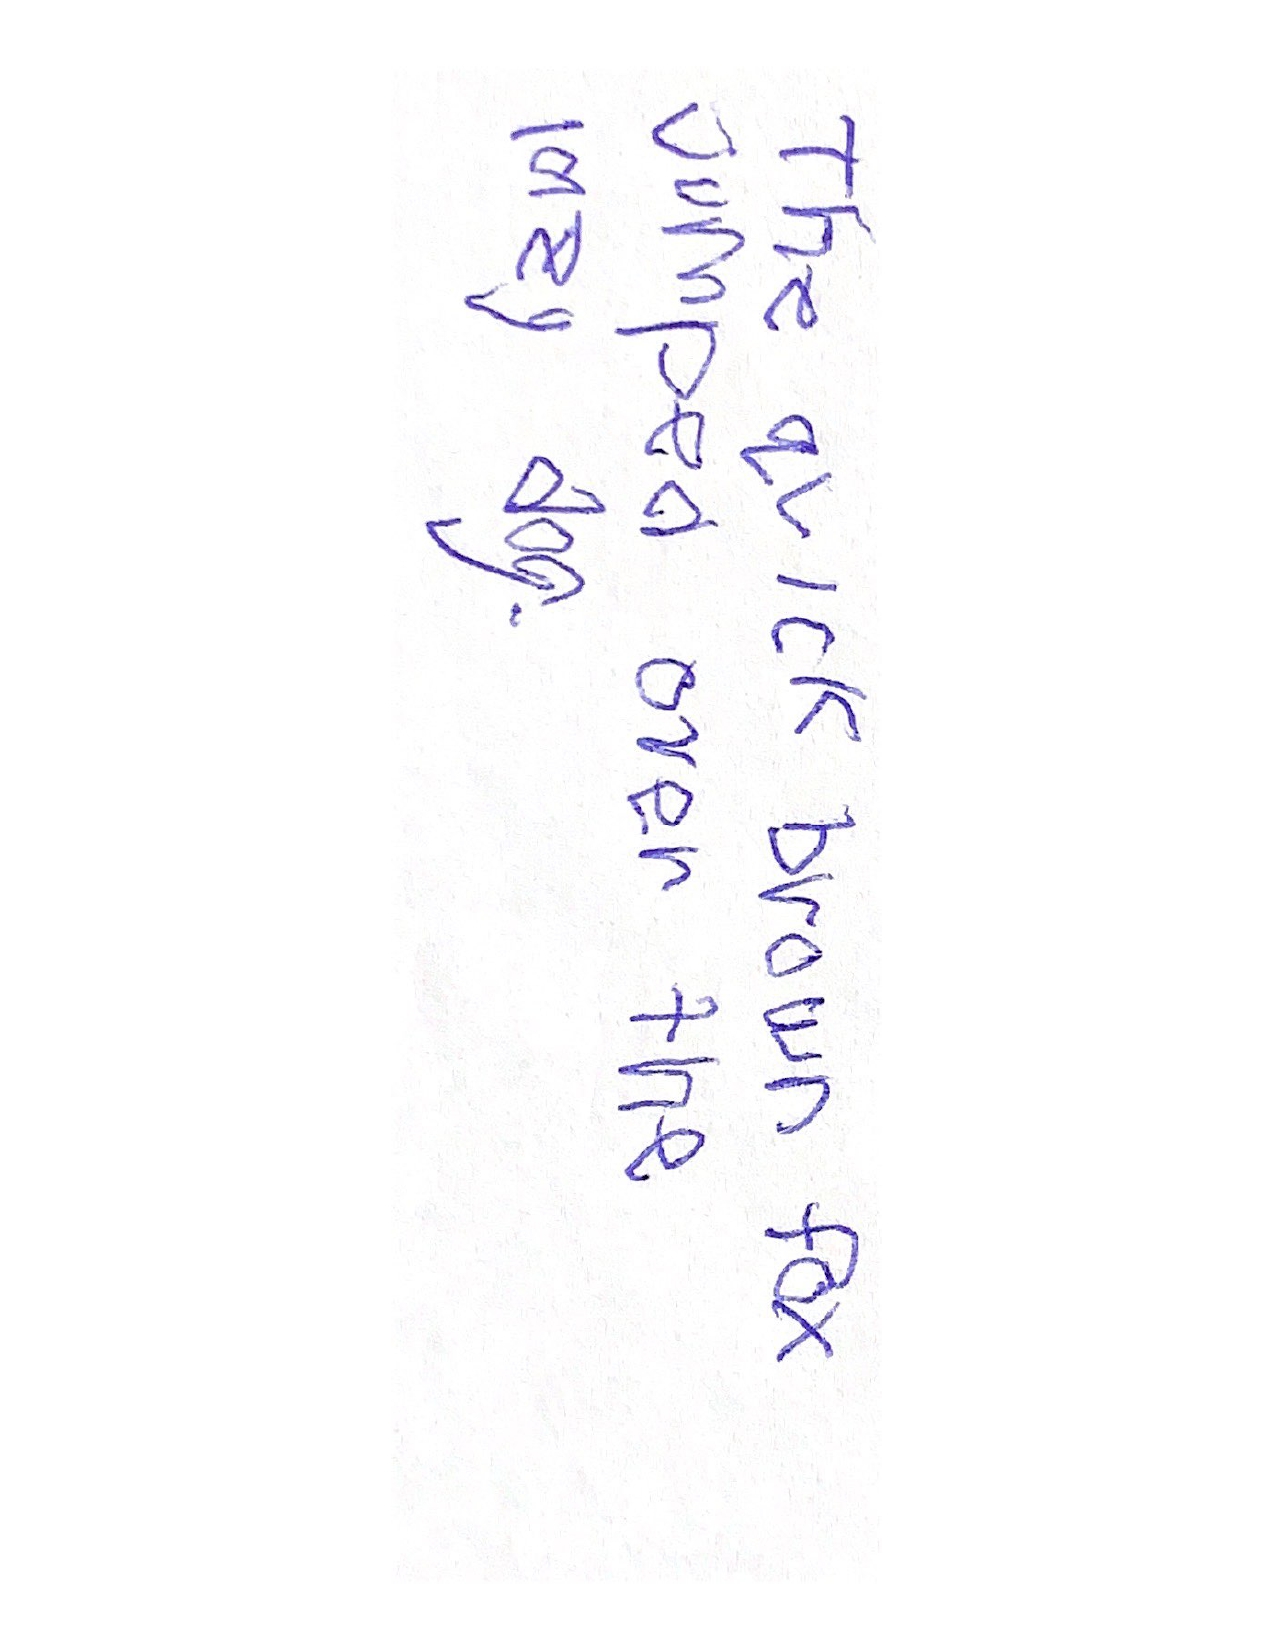 The quick brown fox
Jumped over the
lazy dog.